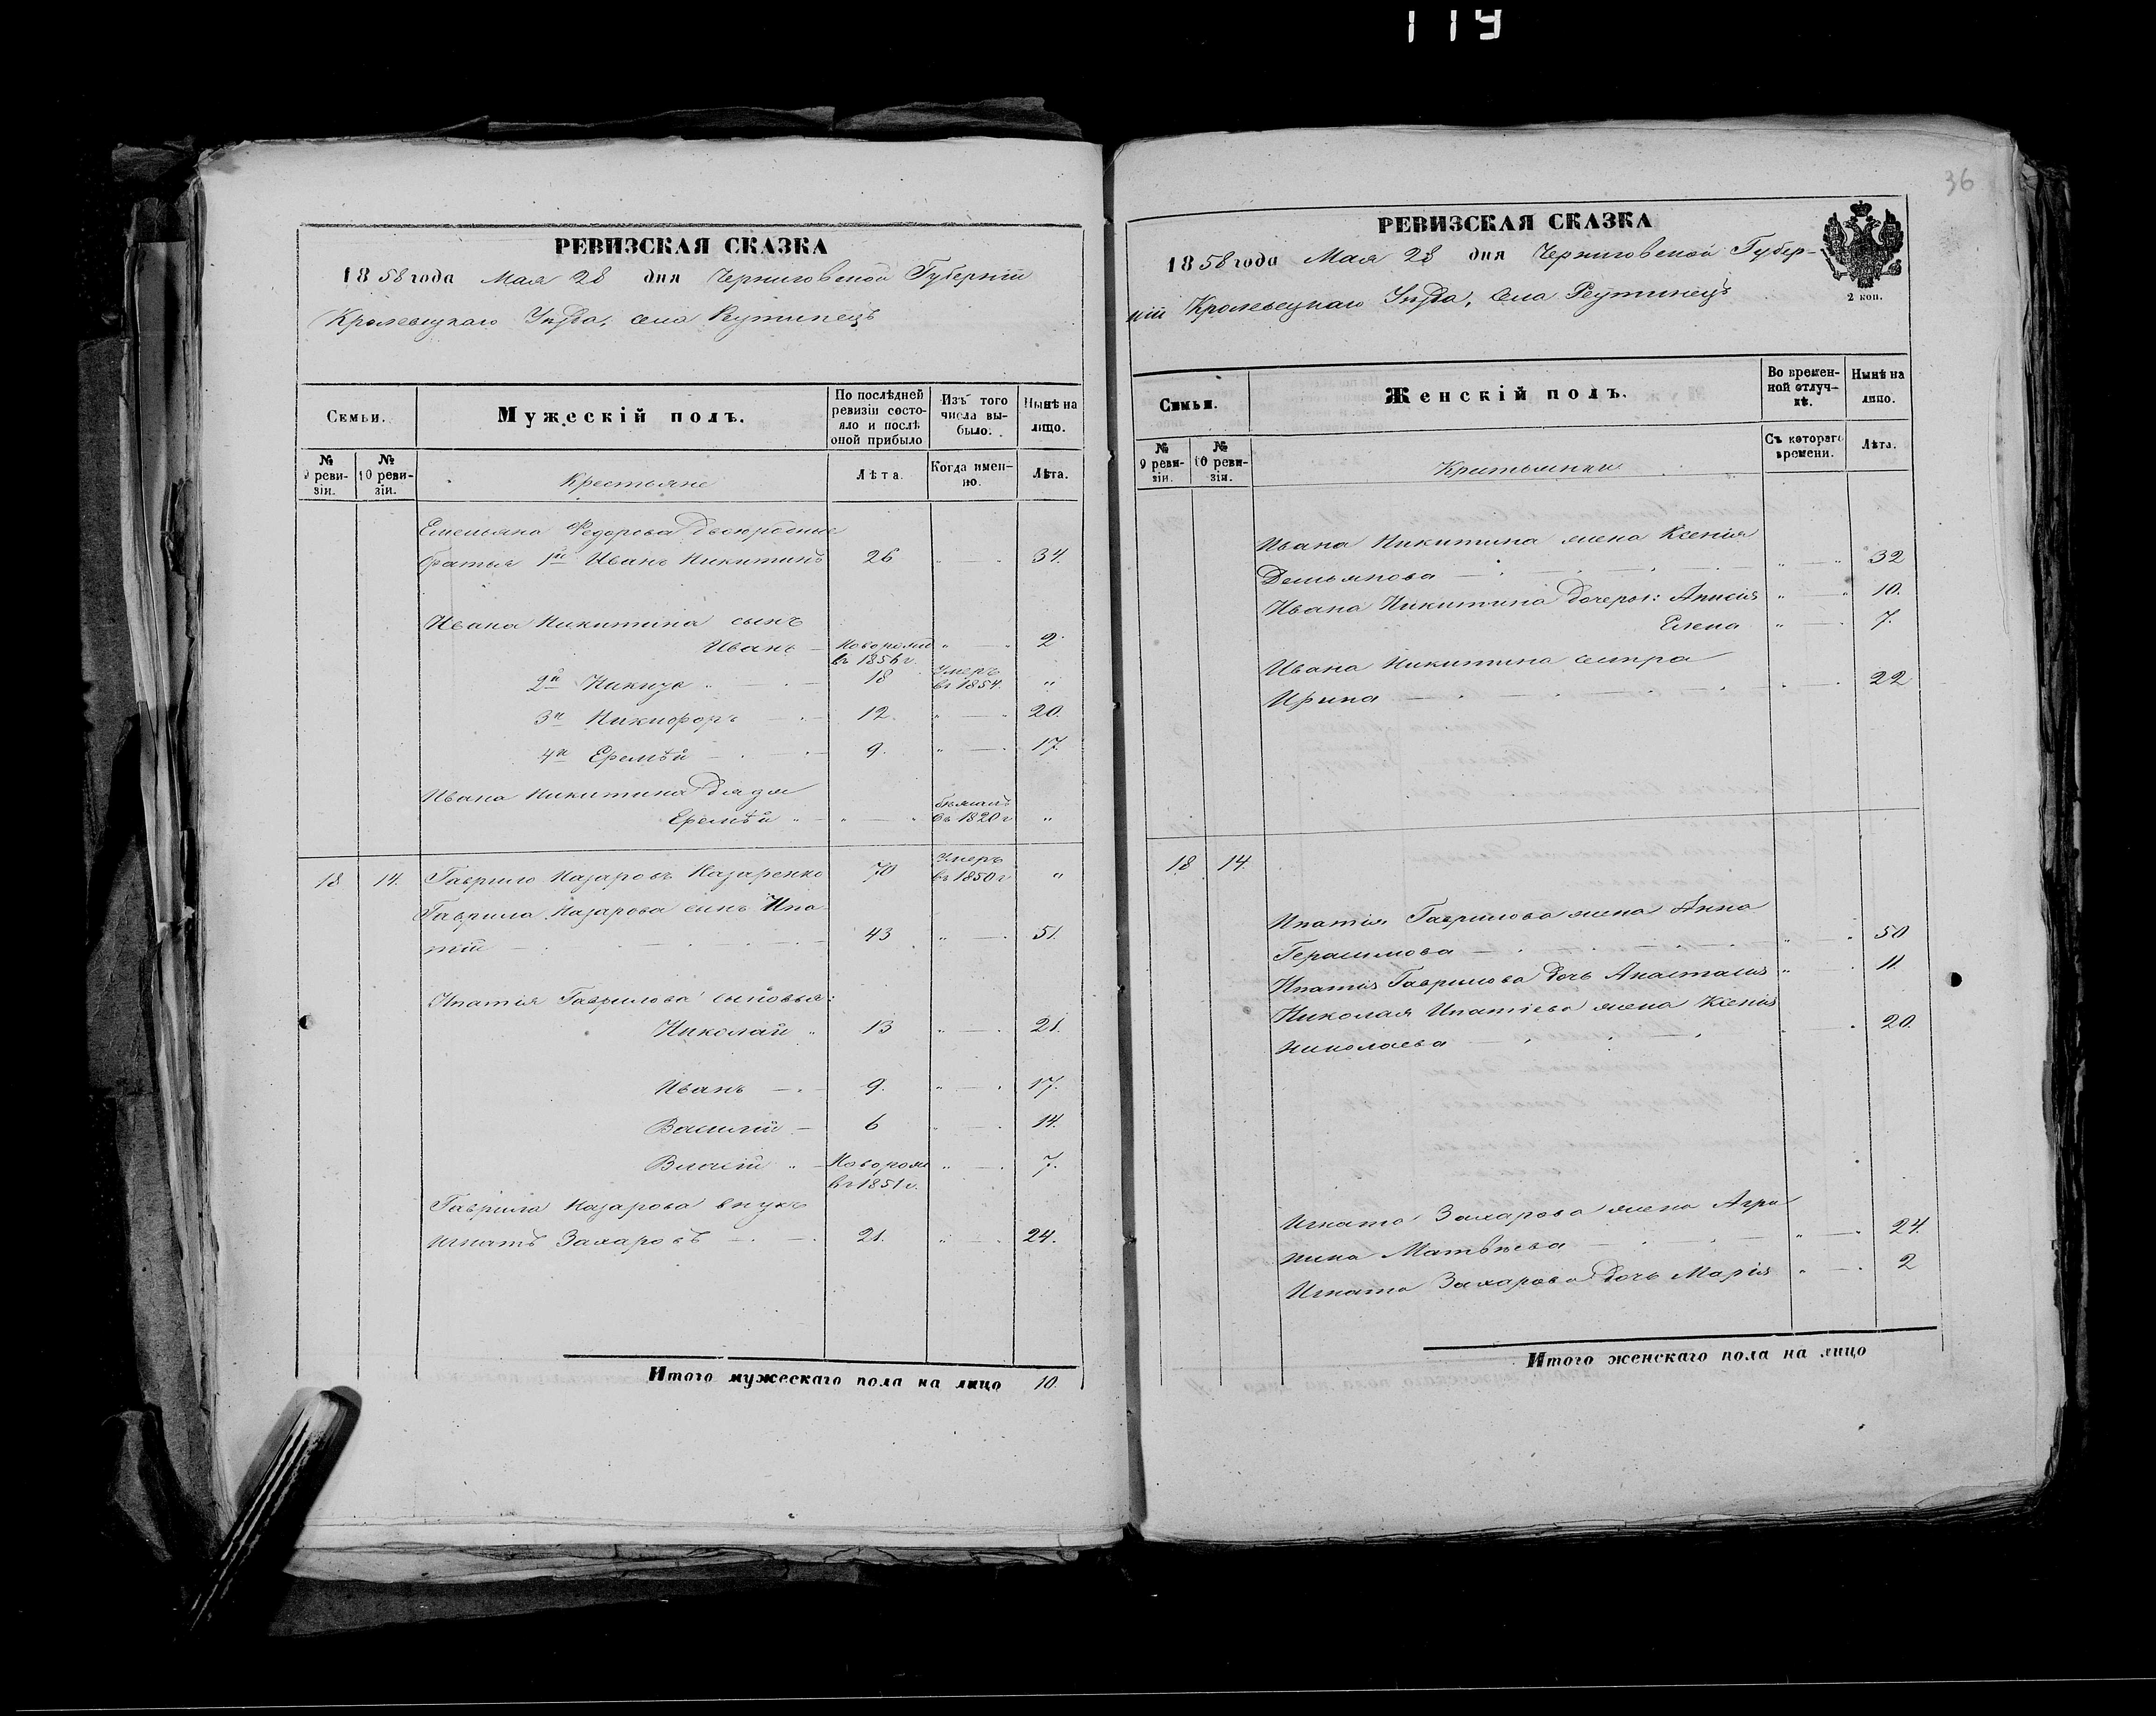 119
РЕВИЗСКАЯ СКАЗКА
1858 года Мая 28 дня Черниговской Губерніи
Кролевецкаго Уѣзда, села Реутинецъ
Семьи.
Мужескій полъ.
По послѣдней ревизіи состояло и послѣ оной прибыло
Изъ того числа выбыло.
Нынѣ на лицо.
№ 9 ревизіи.
№ 10 ревизіи.
Крестьяне
Лѣта.
Когда именно.
Лѣта.
Емельяна Федорова двоюродные
братья 1й Иванъ Никитинъ 26 " — " 34.
Ивана Никитина сынъ
Иванъ — Новорожд. въ 1856 г. " — " 2
2й 18 Умеръ въ 1854. "
3й Никифоръ — 12. " — " 20.
4й Еремѣй — 9. " — " 17.
Ивана Никитина дядя
Еремѣй " — " — " бѣжалъ въ 1820 г "
18 14. Гаврило Назаровъ Назаренко 70 Умеръ въ 1850 г "
Гаврила Назарова сынъ Ипа-
тій — 43 " — " 51.
Ипатія Гаврилова сыновья:
Николай " 13 " — " 21.
Иванъ — 9. " — " 17.
Василій — 6 " — " 14.
Власій " — Новорож. въ 1851 г. " — " 7.
Гаврила Назарова внукъ
Игнатъ Захаровъ — 21. " — " 24.
Итого мужескаго пола на лицо 10.
36
РЕВИЗСКАЯ СКАЗКА
2 коп.
1858 года Мая 28 дня Черниговской Губер-
ніи Кролевецкаго Уѣзда, села Реутинецъ
Семьи.
Женскій полъ.
Во временной отлучкѣ.
Нынѣ на лицо.
№ 9 ревизіи.
№ 10 ревизіи.
Крестьянки
Съ котораго времени.
Лѣта.
Ивана Никитина жена Ксенія
Демьянова — " — " 32
Ивана Никитина дочери: Анисія " — " 10.
Елена " — " 7.
Ивана Никитина сестра
Ирина — " — " 22
18 14.
Ипатія Гаврилова жена Анна
Герасимова — " — " 50
Ипатія Гаврилова дочь Анастасія " " 11.
Николая Ипатіева жена Ксенія
Николаева — " " 20.
Игната Захарова жена Агри-
пина Матвѣева — " — " 24.
Игната Захарова дочь Марія " — " 2
Итого женскаго пола на лицо